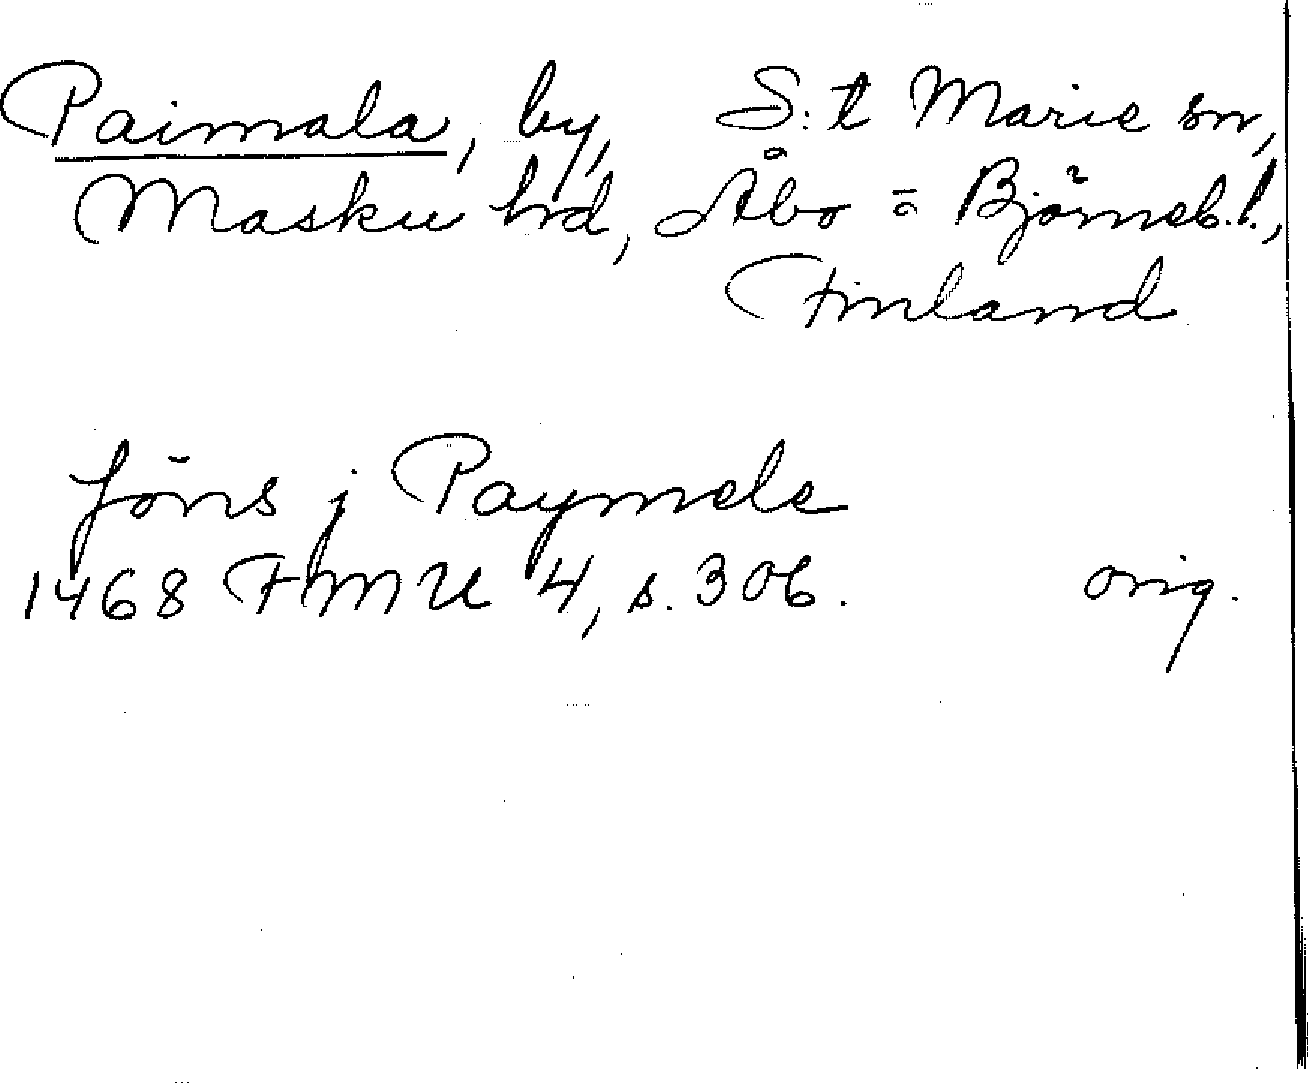 Paimala, by, S:t Marie sn,
Masku hd, Åbo = Björneb. l.,
Finland
Jöns j Paymele
1468 FMU 4, s. 306. orig.